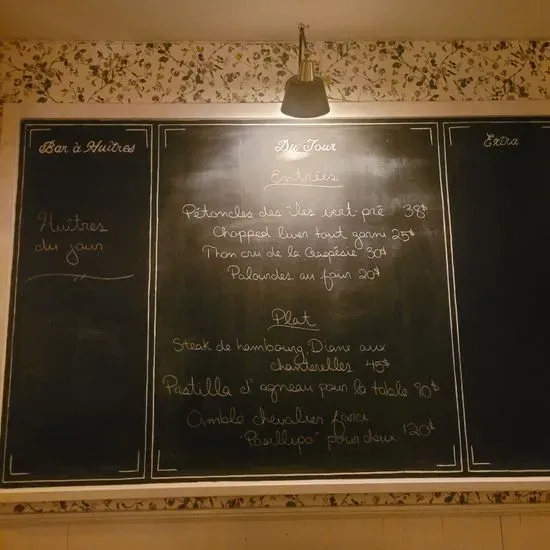 Bar à Huîtres
Huîtres
du jour
Du Jour
Entrées
Pétoncles des îles vert pré 38$
Chopped liver tout garni 25$
Thon cru de la Gaspésie 30$
Palourdes au four 20$
Plat
Steak de hambourg Diane aux
chanterelles 45$
Pastilla d'agneau pour la table 90$
Omble chevalier farci
"Pasillipo" pour deux 120$
Extra